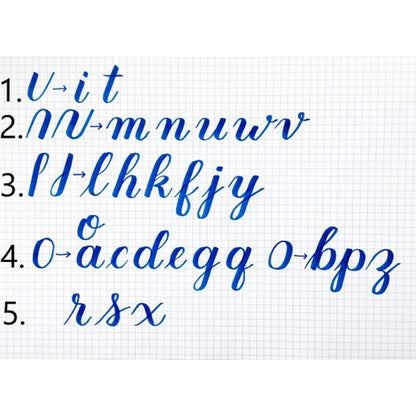 1. → i t
2. → m n u w v
3. → l h k f j y
o
4. O → a c d e g q O → b p z
5. r s x